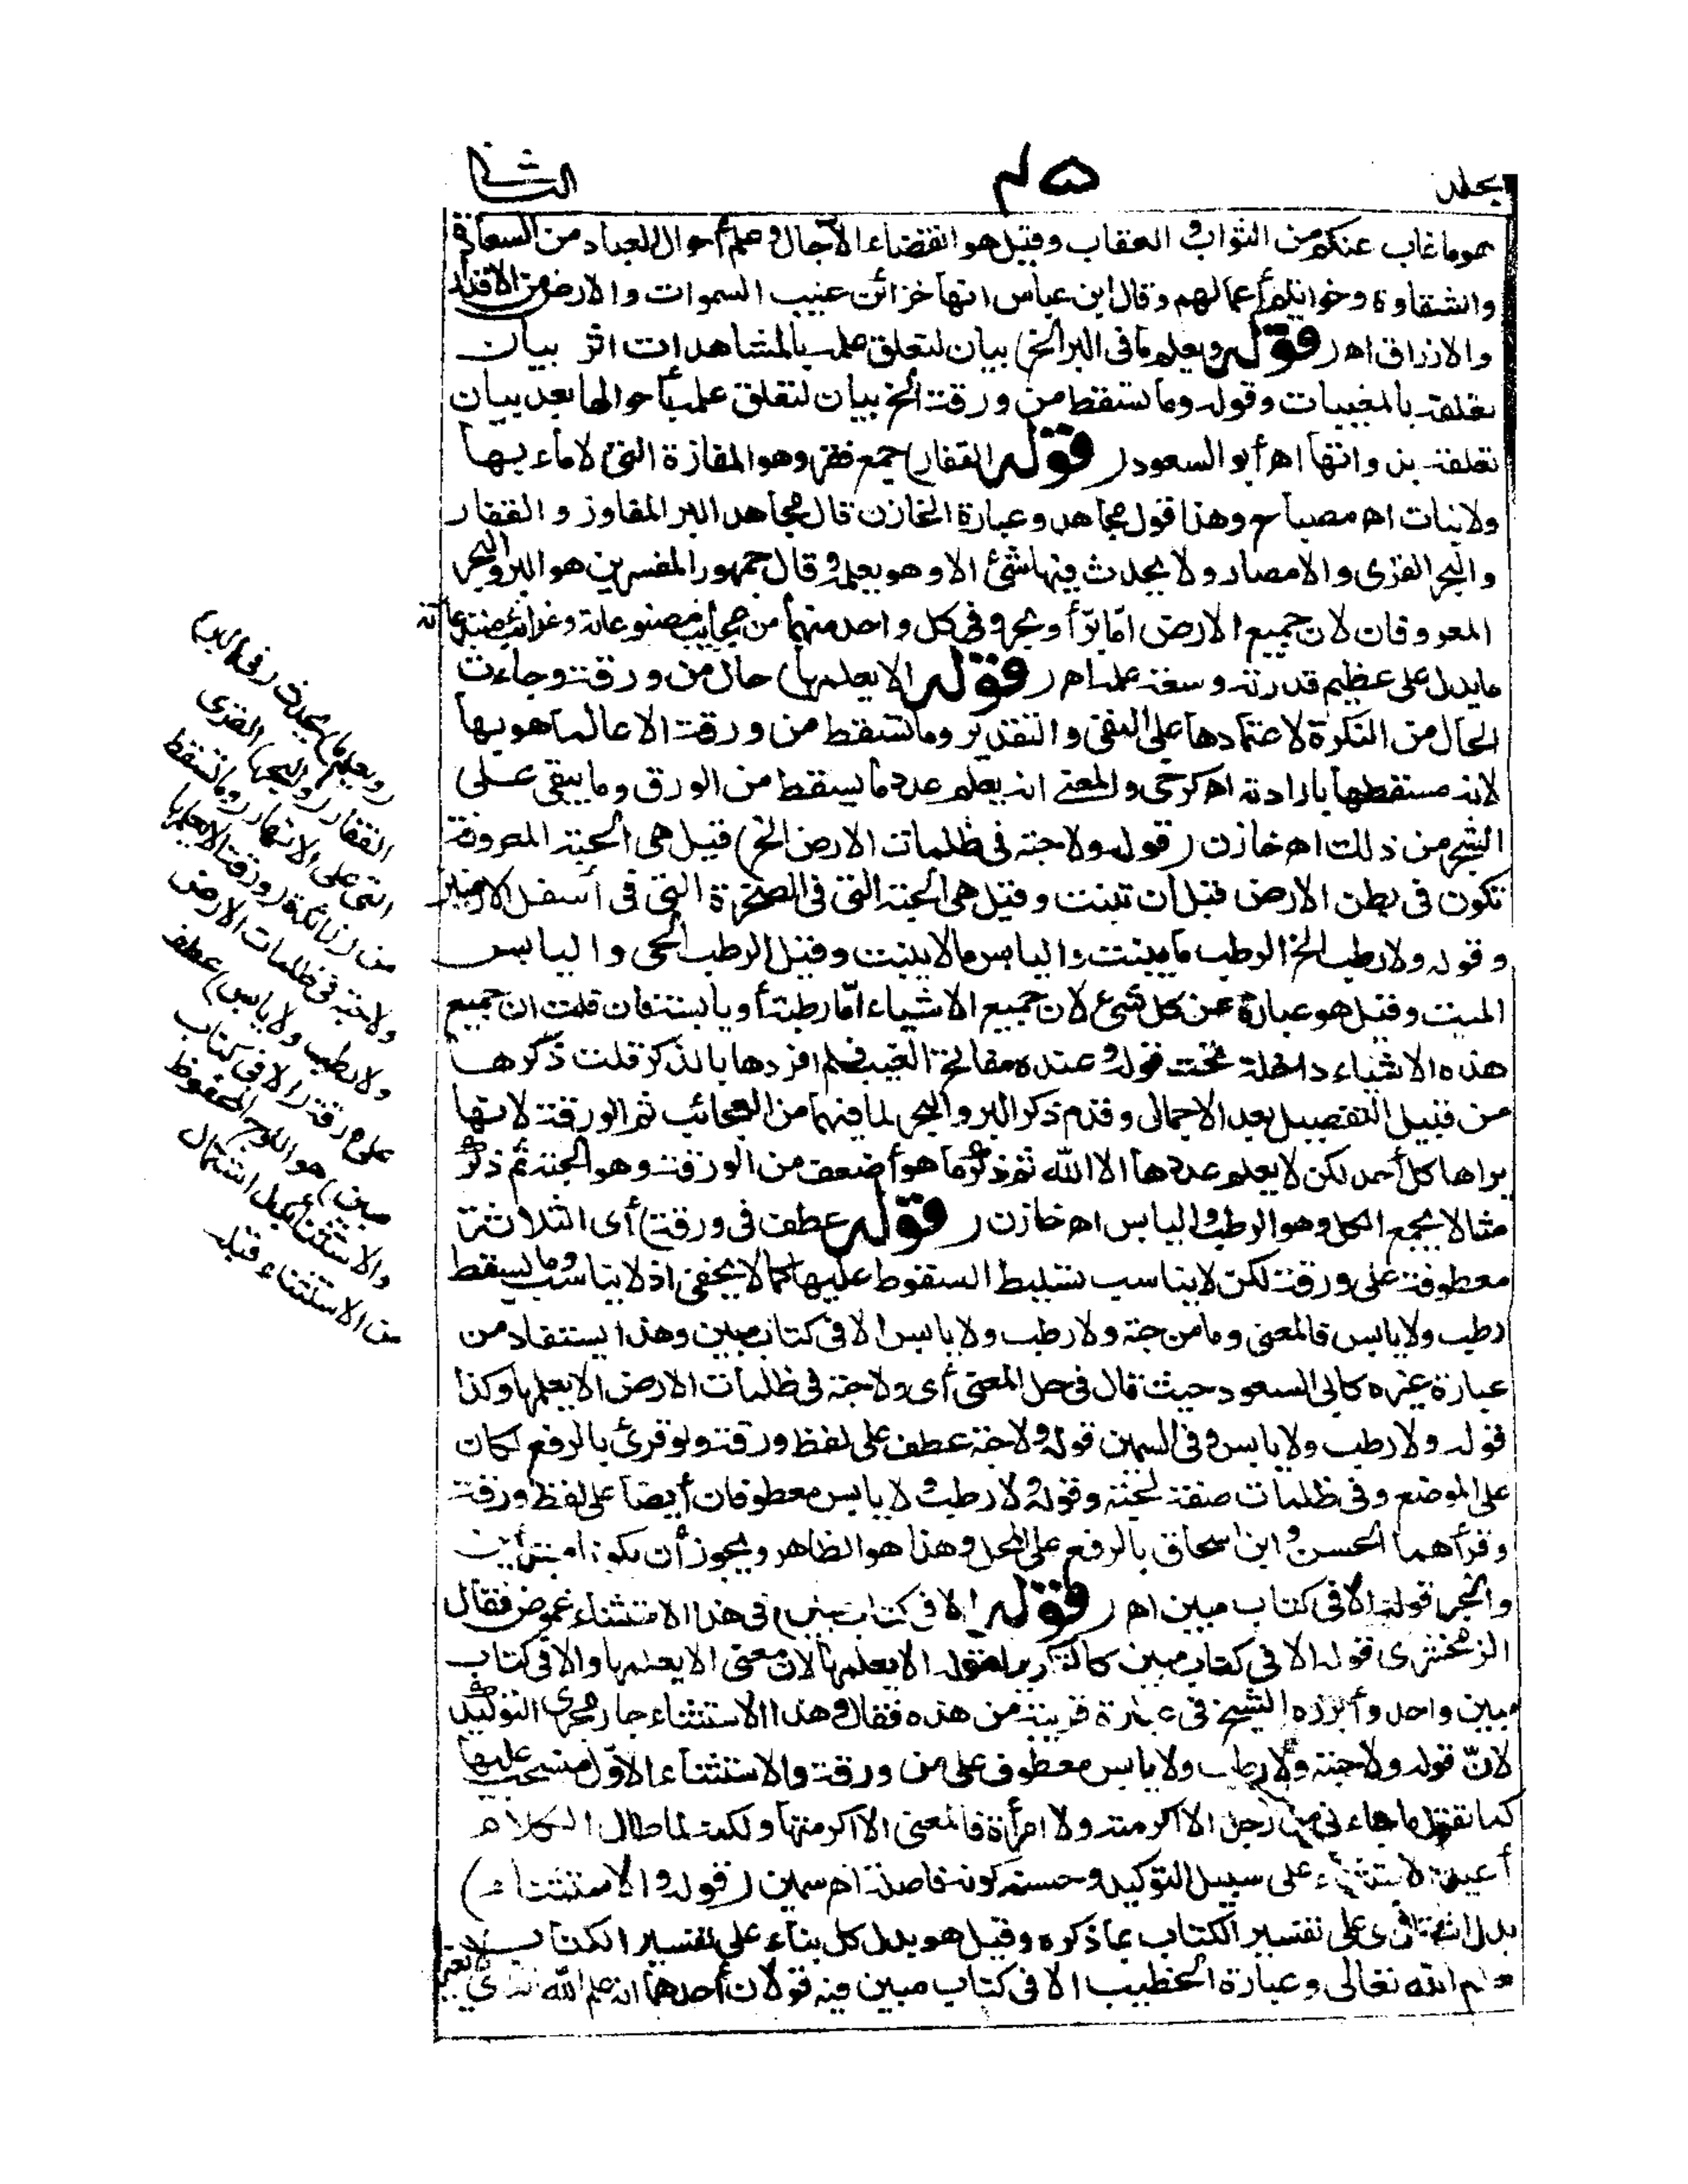 جلد
٤٥
الثانى
هو ما غاب عنكم من الثواب والعقاب وقيل هو انقضاء الآجال وعلم أحوال العباد من السعادة
والشقاوة وخواتيم أعمالهم وقال ابن عباس انها خزائن غيب السموات والارض من الاقدار
والارزاق اهـ (قوله ويعلم ما فى البر الخ) بيان لتعلق علمه بالمشاهدات اثر بيان
تعلقه بالمغيبات وقوله وما تسقط من ورقة الخ بيان لتعلق علمه بأحوالها بعد بيان
تعلقه بذواتها اهـ أبو السعود (قوله القفار) جمع قفر وهو المفازة التى لا ماء بها
ولا نبات اهـ مصباح وهذا قول مجاهد وعبارة الخازن قال مجاهد البر المفاوز والقفار
والبحر القرى والامصار ولا يحدث فيها شئ الا وهو يعلمه وقال جمهور المفسرين هو البر والبحر
المعروفان لان جميع الارض امّا برّ أو بحر وفى كل واحد منهما من عجائب مصنوعاته وغرائب مبتدعاته
ما يدل على عظيم قدرته وسعة علمه اهـ (قوله الا يعلمها) حال من ورقة وجاءت
الحال من النكرة لاعتمادها على النفى والتقدير وما تسقط من ورقة الا عالما هو بها
لانه مسقطها بارادته اهـ كرخى والمعنى انه يعلم عدد ما يسقط من الورق وما يبقى على
الشجر من ذلك اهـ خازن (قوله ولا حبة فى ظلمات الارض الخ) قيل هى الحبة المعروفة
تكون فى بطن الارض قبل أن تنبت وقيل هى الحبة التى فى الصخرة التى فى أسفل الارضين
وقوله ولا رطب الخ الرطب ما ينبت واليابس ما لا ينبت وقيل الرطب الحى واليابس
الميت وقيل هو عبارة عن كل شئ لان جميع الاشياء امّا رطبة أو يابسة فان قلت ان جميع
هذه الاشياء داخلة تحت قوله وعنده مفاتح الغيب فلم افردها بالذكر قلت ذكرها
من قبيل التفصيل بعد الاجمال وقدم ذكر البر والبحر لما فيهما من العجائب ثم الورقة لانها
يراها كل أحد لكن لا يعلم عددها الا الله ثم ذكر ما هو أضعف من الورقة وهو الحبة ثم ذكر
مثالا يجمع الكل وهو الرطب واليابس اهـ خازن (قوله عطف فى ورقة) أى الثلاثة
معطوفة على ورقة لكن لا يناسب تسليط السقوط عليها كما لا يخفى اذ لا يناسب وما يسقط
رطب ولا يابس فالمعنى وما من حبة ولا رطب ولا يابس الا فى كتاب مبين وهذا يستفاد من
عبارة غيره كابى السعود حيث قال فى حل المعنى أى ولا حبة فى ظلمات الارض الا يعلمها وكذا
قوله ولا رطب ولا يابس وفى السمين قوله ولا حبة عطف على لفظ ورقة ولو قرئ بالرفع لكان
على الموضع وفى ظلمات صفة لحبة وقوله ولا رطب ولا يابس معطوفان أيضا على لفظ ورقة
وقرأهما الحسن وابن اسحاق بالرفع على المحل وهذا هو الظاهر ويجوز أن يكونا مبتدأين
والخبر قوله الا فى كتاب مبين اهـ (قوله الا فى كتاب مبين) فى هذا الاستثناء غموض فقال
الزمخشرى قوله الا فى كتاب مبين كالتكرير لقوله الا يعلمها لان معنى الا يعلمها والا فى كتاب
مبين واحد وأبرزه الشيخ فى عبارة قريبة من هذه فقال وهذا الاستثناء جار مجرى التوكيد
لانّ قوله ولا حبة ولا رطب ولا يابس معطوف على من ورقة والاستثناء الاوّل منسحب عليها
كما تقول ما جاءنى من رجل الا اكرمته ولا امرأة فالمعنى الا اكرمتها ولكنه لما طال الكلام
أعيد الاستثناء على سبيل التوكيد وحسنه كونه فاصلة اهـ سمين (قوله والاستثناء)
بدل اشتمال أى على تفسير الكتاب بما ذكره وقيل هو بدل كل بناء على تفسير الكتاب
بعلم الله تعالى وعبارة الخطيب الا فى كتاب مبين فيه قولان أحدهما انه علم الله الذى لا يغير
(ويعلم ما) يحدث (فى البر)
القفار (والبحر) القرى
التى على الانهار (وما تسقط
من) زائدة (ورقة الا يعلمها
ولا حبة فى ظلمات الارض
ولا رطب ولا يابس) عطف
على ورقة (الا فى كتاب
مبين) هو اللوح المحفوظ
والاستثناء بدل اشتمال
من الاستثناء قبله